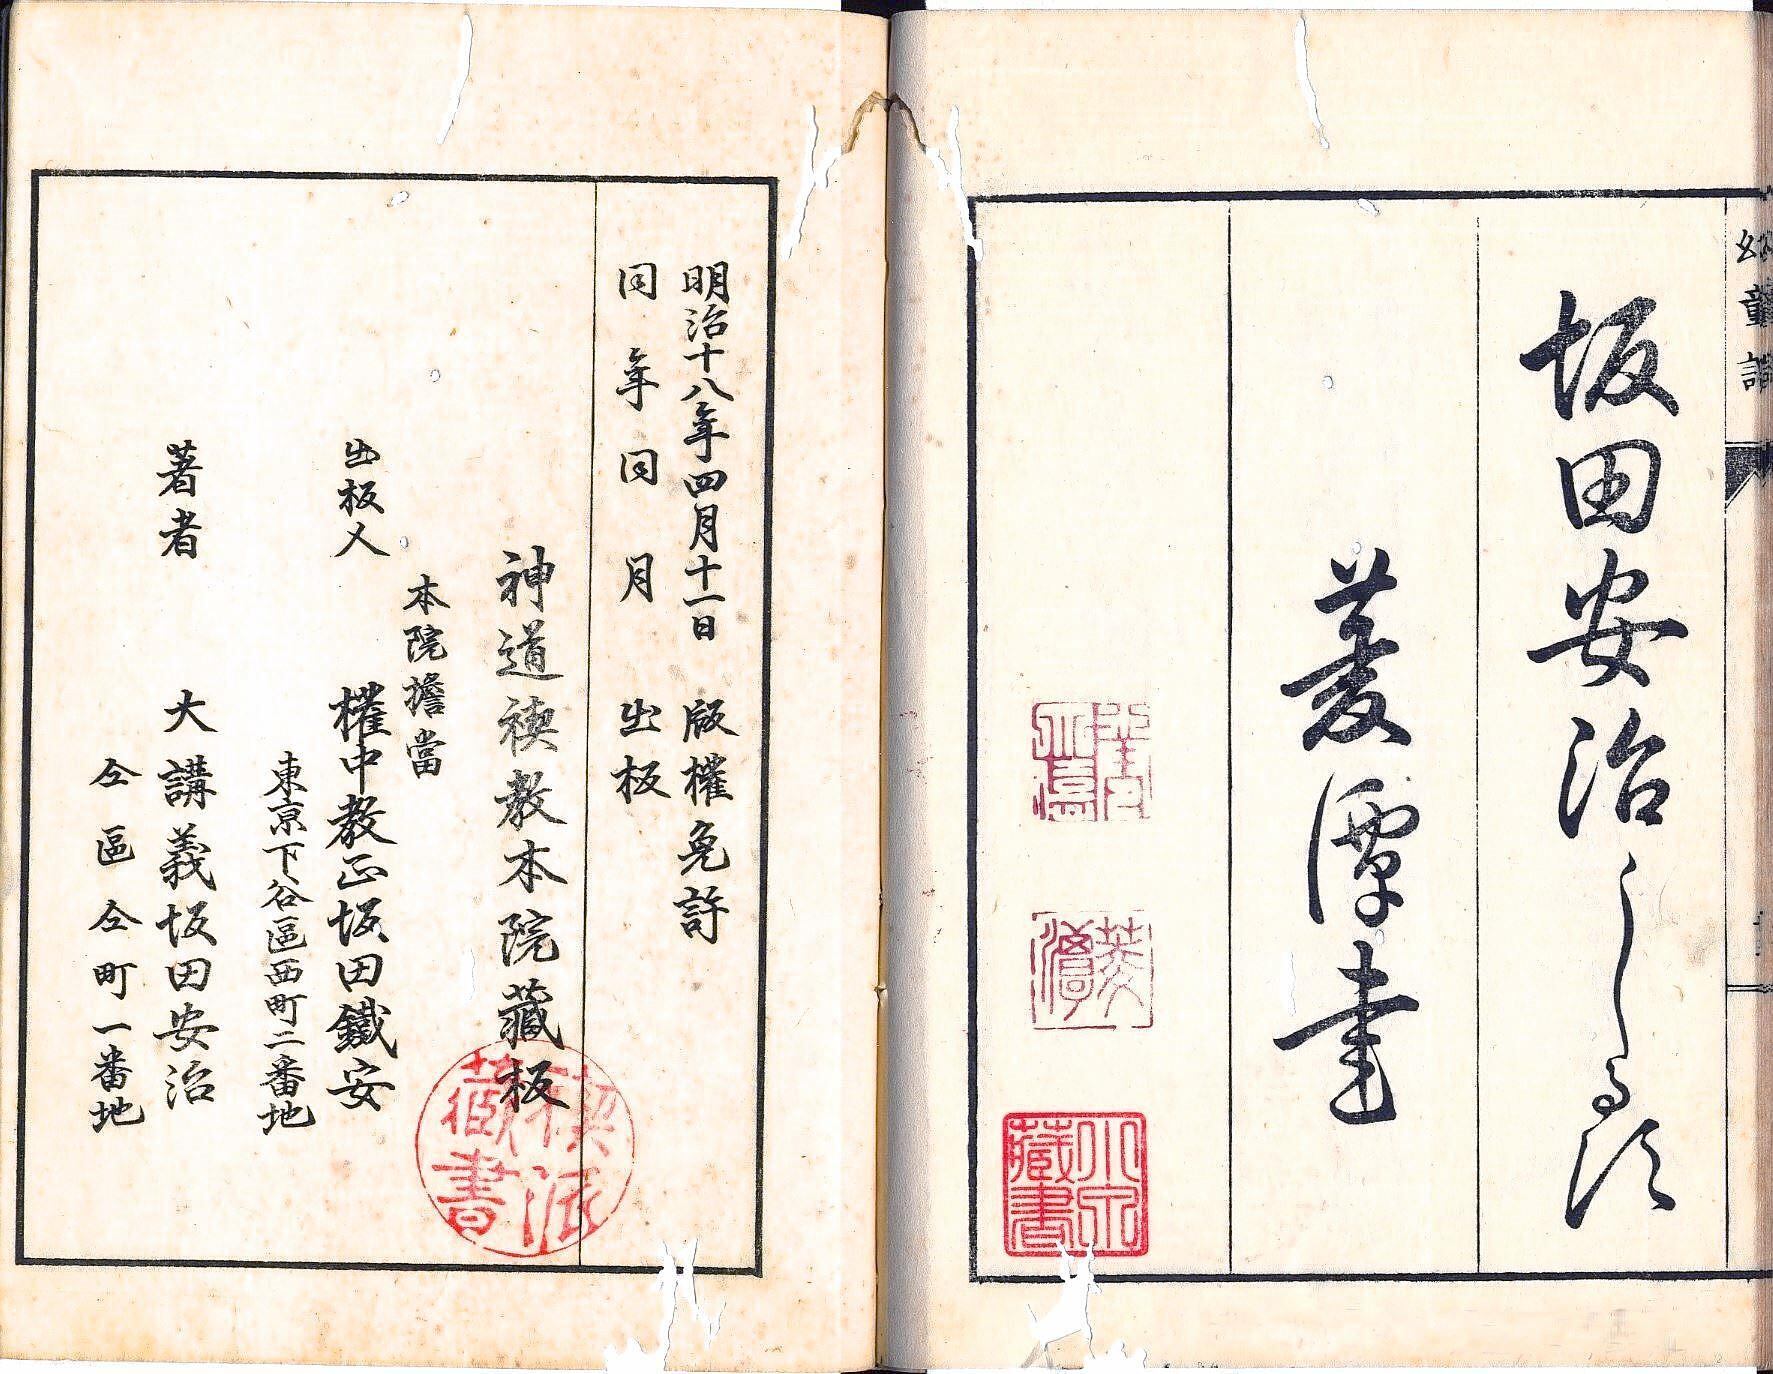 坂田安治しるす
菱潭書
明治十八年四月十一日 版權免許
同年同月 出板
神道禊教本院藏板
本院擔當
出板人 權中教正坂田鐵安
東京下谷區西町二番地
著者 大講義坂田安治
仝區仝町一番地
禊派
藏書
藏書